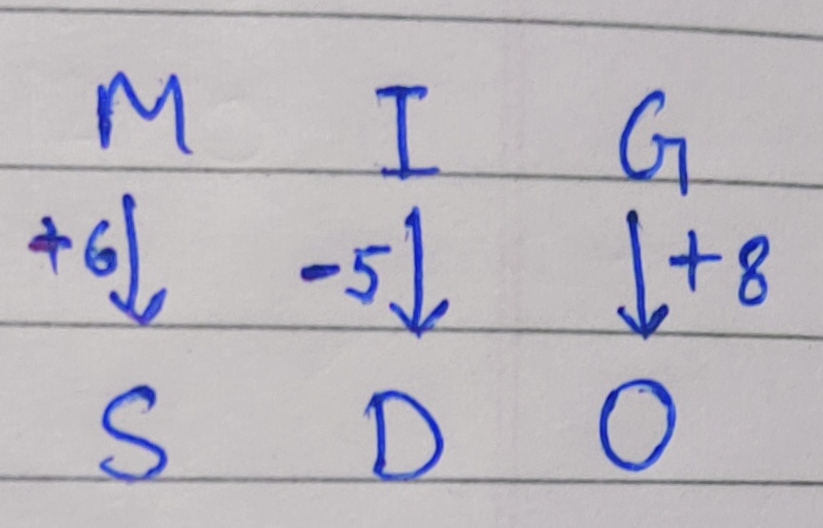 M I G
+6↓ -5↓ ↓+8
S D O